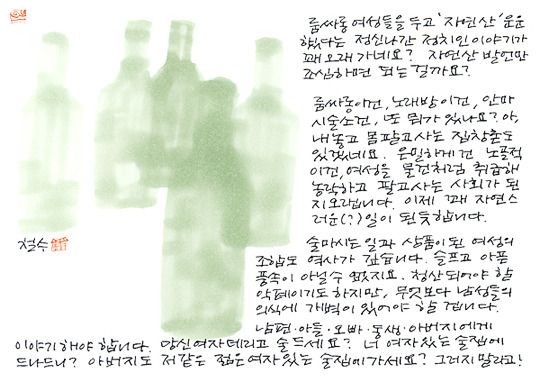 룸싸롱 여성들을 두고 '자연산' 운운
했다는 정신나간 정치인 이야기가
꽤 오래 가네요? 자연산 발언만
조심하면 되는 걸까요?
룸싸롱이건, 노래방이건, 안마
시술소건, 또 뭐가 있나요? 아,
내놓고 몸 팔고 사는 집창촌도
있겠네요. 은밀하게건 노골적
이건, 여성을 물건처럼 취급해
농락하고 팔고사는 사회가 된
지 오랩니다. 이제 꽤 자연스
러운(?) 일이 된 듯 합니다.
술마시는 일과 상품이 된 여성의
조합도 역사가 깊습니다. 슬프고 아픈
풍속이 아닐 수 없지요. 청산되어야 할
악폐이기도 하지만, 무엇보다 남성들의
의식에 개벽이 있어야 할 겁니다.
남편·아들·오빠·동생·아버지에게
이야기해야 합니다. 당신 여자 데리고 술 드세요? 너 여자 있는 술집에
드나드니? 아버지도 저 같은 젊은 여자 있는 술집에 가세요? 그러지 말라고!
철수